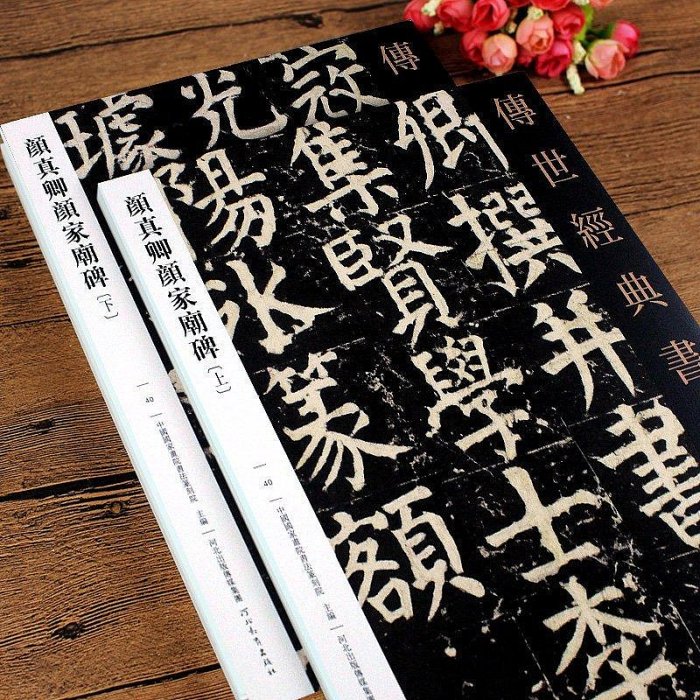 傳
光
顔真卿顔家廟碑〔下〕
40
中國國家畫院書法篆刻院 主編
河北出版傳媒集團
河北教育出版社
傳世經典書
卿撰并書
集賢學士李
陽冰篆額
顔真卿顔家廟碑〔上〕
40
中國國家畫院書法篆刻院 主編
河北出版傳媒集團